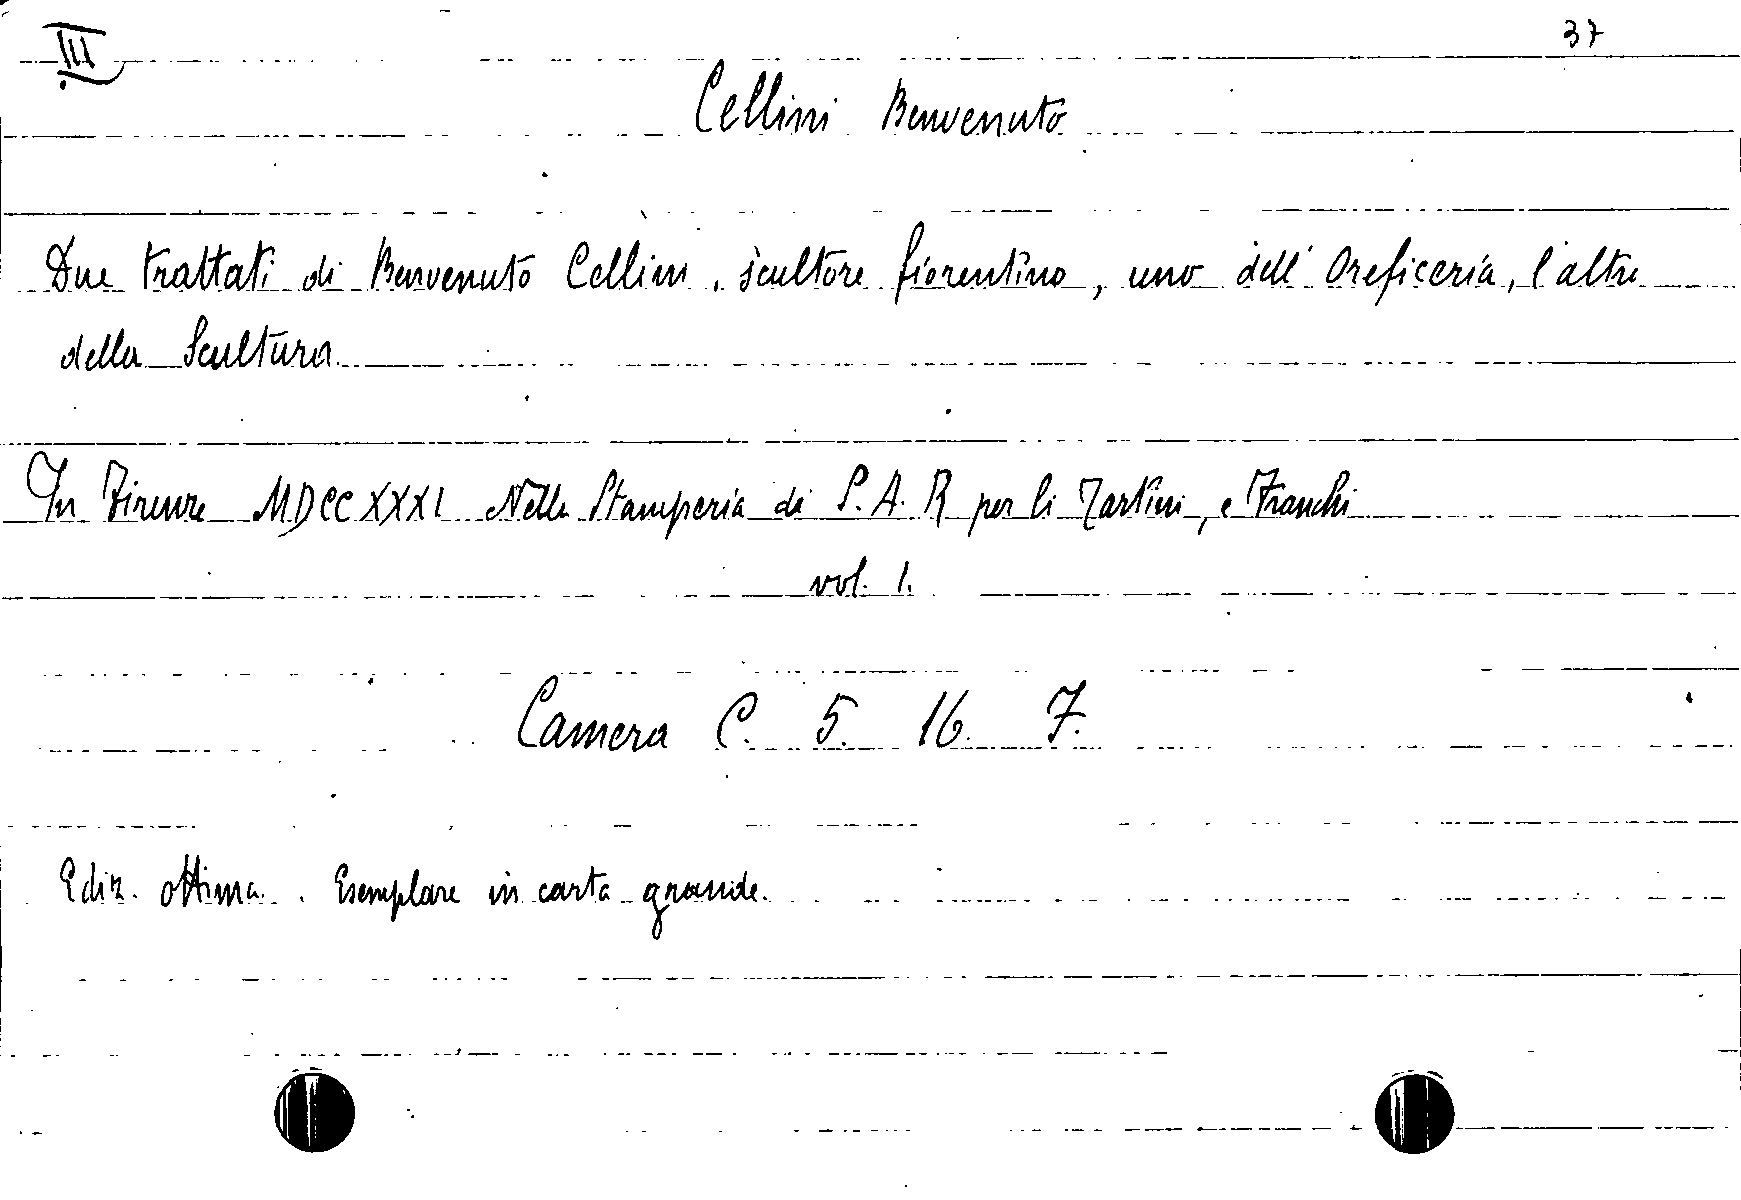 III
37
Cellini Benvenuto
Due trattati di Benvenuto Cellini, scultore fiorentino, uno dell' Oreficeria, l'altro
della Scultura.
In Firenze MDCCXXXI Nella Stamperia di S. A. R per li Tartini, e Franchi
vol. 1.
Camera C. 5. 16. 7.
Ediz. ottima. Esemplare in carta grande.